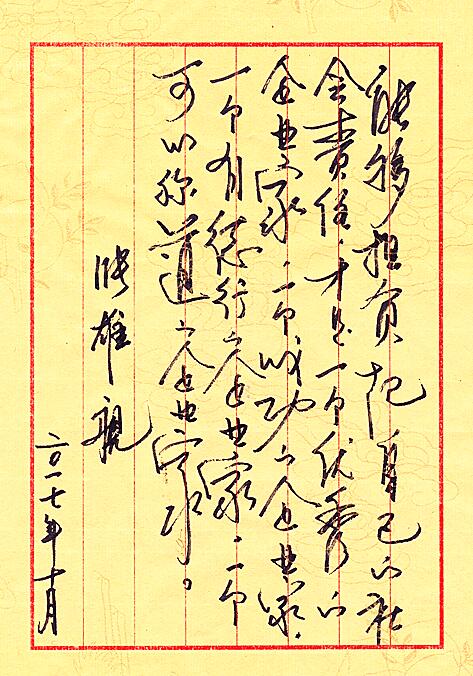 能够担负起自己的社
会责任，才是一个优秀的
企业家，一个成功的企业家，
一个有德行的企业家，一个
可以称道的企业家。
雄
二〇一七年十月